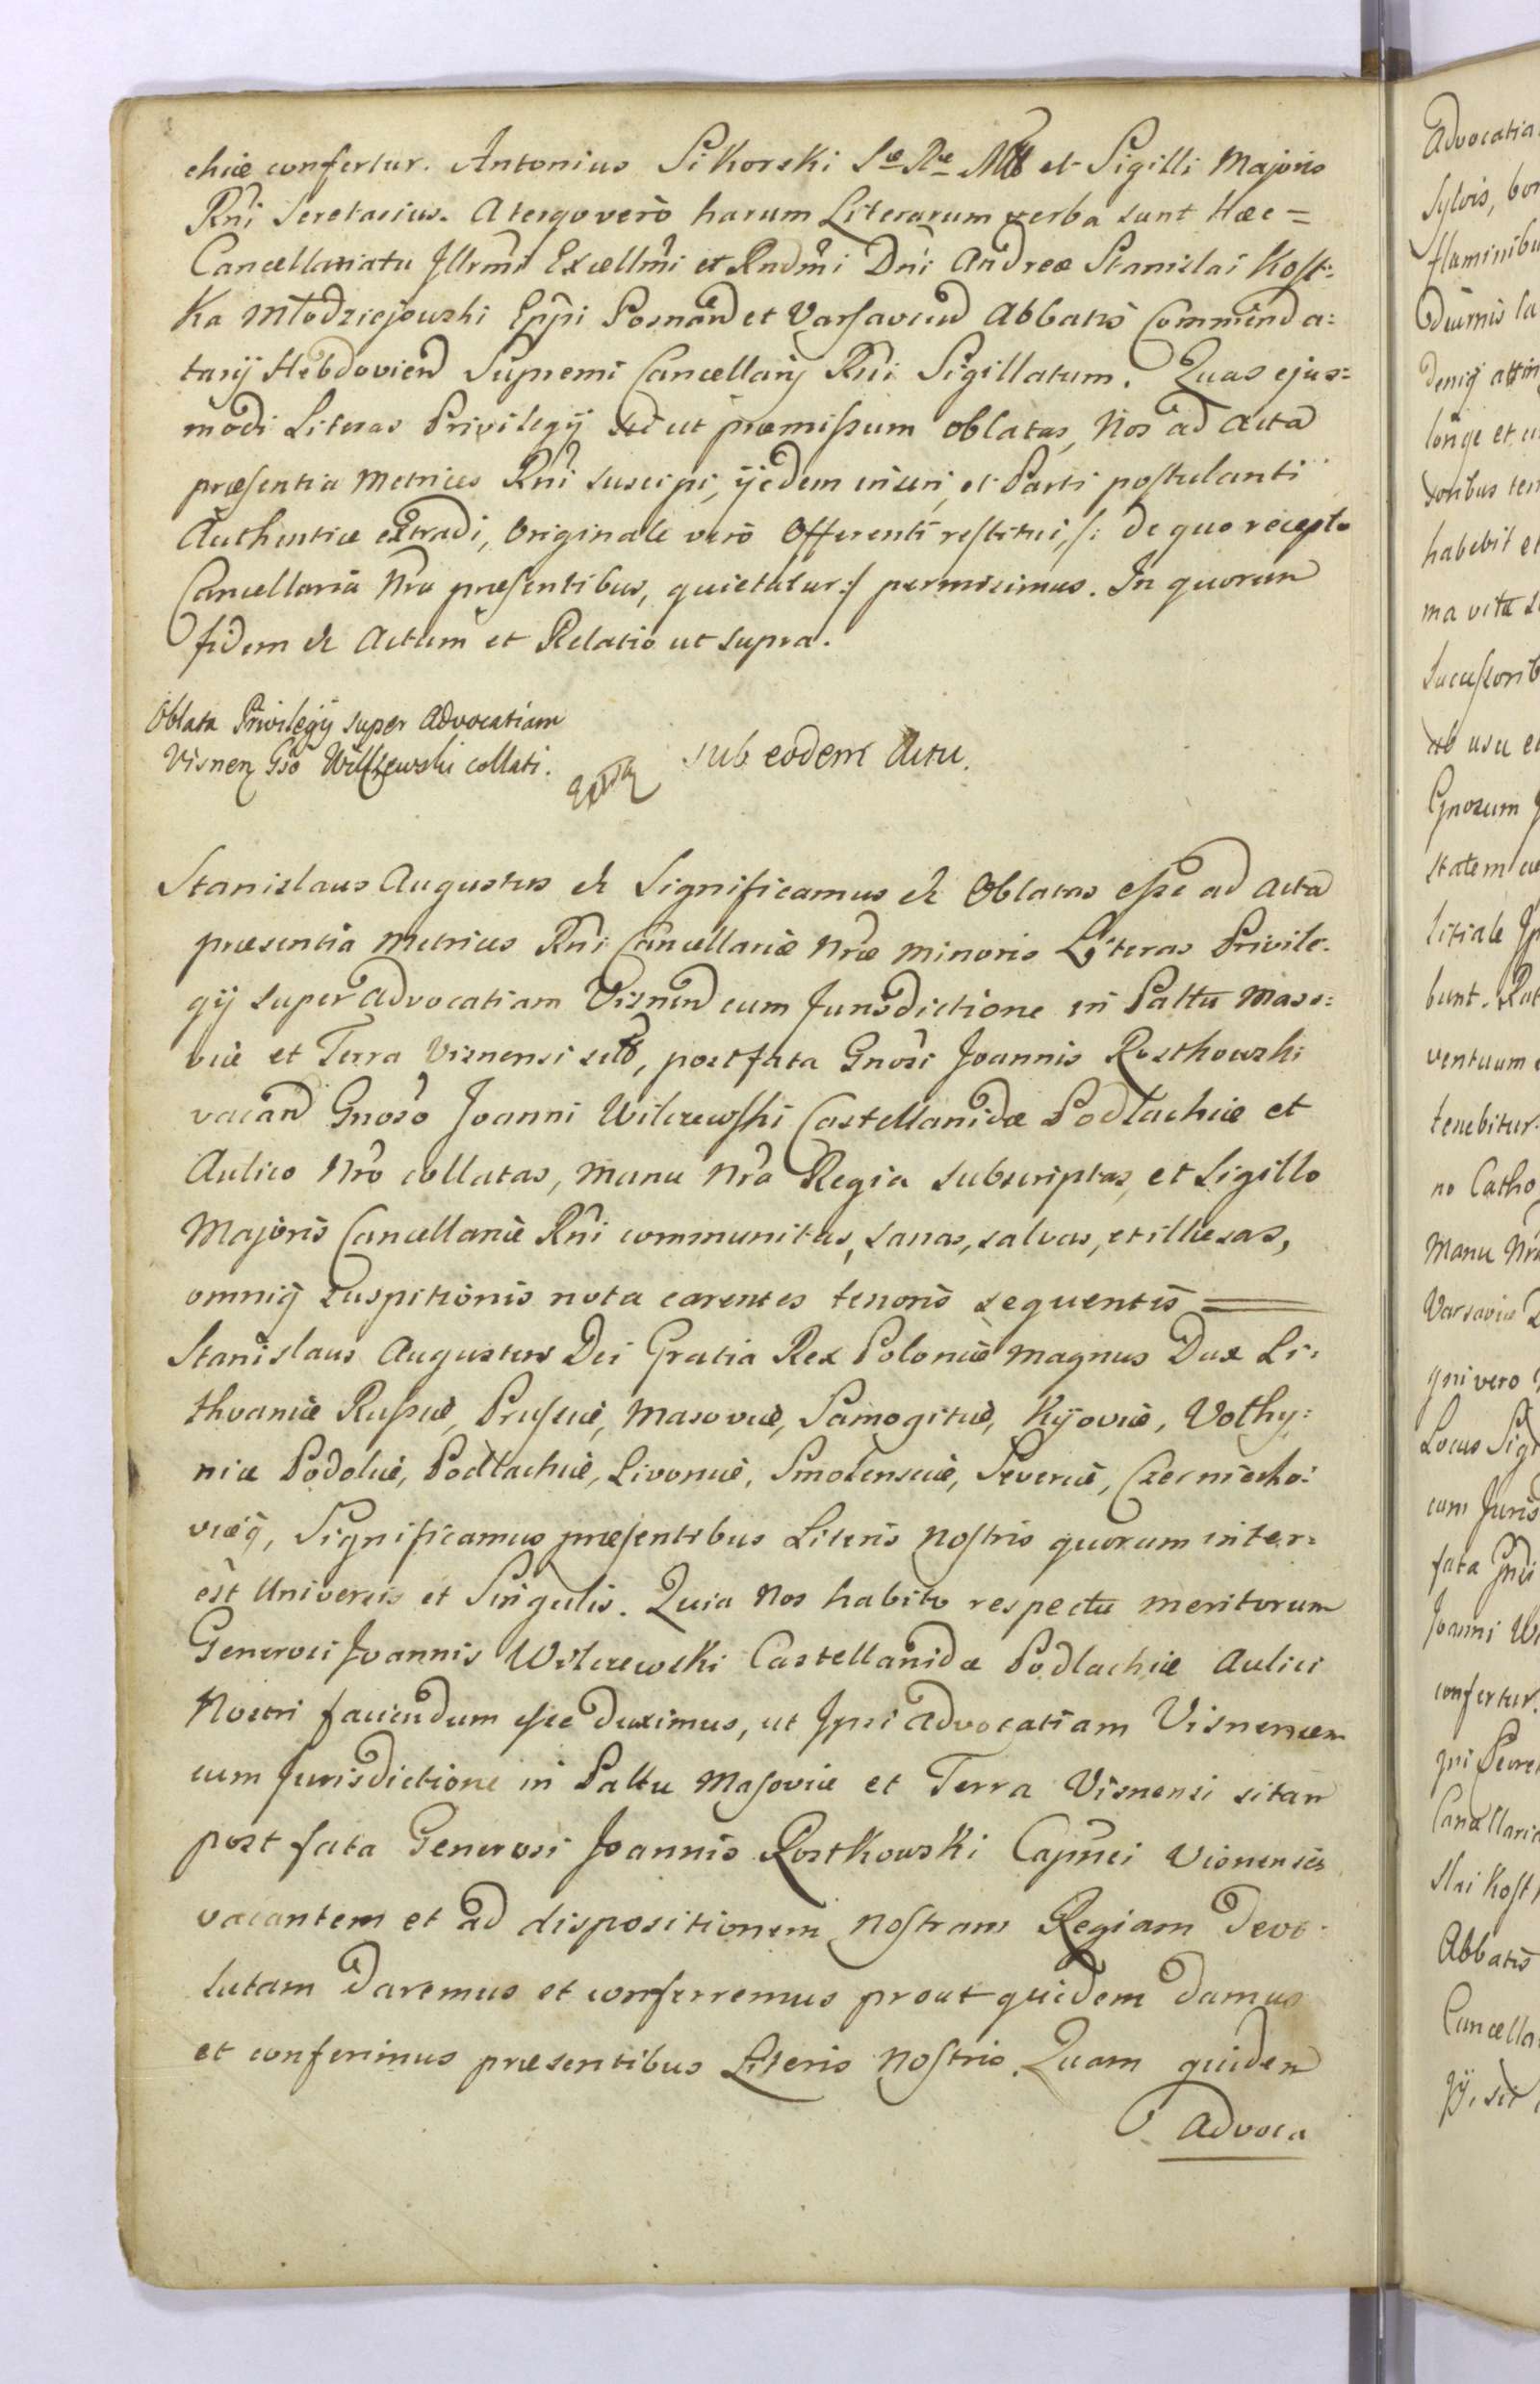 chiæ confertur. Antonius Sikorski Sæ Ræ Mttis et Sigilli Majoris
Rñi Secretarius. A tergo verò harum Literarum verba sunt Hæc =
Cancellariatu Jllrmi Excellmi et Rndmi Dñi Andreæ Stanislai Kost=
ka Młodziejowski Eppi Posnan et Varsavien Abbatis Commenda=
tarij Hebdovien Supremi Cancellarij Rñi Sigillatum. Quas ejus=
modi Literas Privilegij sic ut præmissum oblatas, Nos ad Acta
præsentia Metrices Rñi suscipi, ijsdem inseri, et Parti postulanti
Authentice extradi, Originale verò Offerenti restitui, /: de quo recepto
Cancellaria Nra præsentibus, quietatur :/ permisimus. In quorum
fidem &c Actum et Relatio ut supra.
Oblata Privilegij super Advocatiam
Visnen Gso Wilczewski collati.
sub eodem Actu.
Stanislaus Augustus &c Significamus &c Oblatas esse ad Acta
præsentia Metrices Rñi Cancellariæ Nræ Minoris Literas Privile=
gij super Advocatiam Visnen cum Jurisdictione in Pallũ Maso=
viæ et Terra Visnensi sit, post fata Gnosi Joannis Rostkowski
vacan Gnoso Joanni Wilczewski Castellanidæ Podlachiæ et
Aulico Nro collatas, manu Nra Regia subscriptas, et Sigillo
Majoris Cancellariæ Rñi communitas, sanas, salvas, et illæsas,
omniq suspitionis nota carentes tenoris sequentis =
Stanislaus Augustus Dei Gratia Rex Poloniæ Magnus Dux Li=
thvaniæ Russiæ, Prussiæ, Masoviæ, Samogitiæ, Kijoviæ, Volhy=
niæ Podoliæ, Podlachiæ, Livoniæ, Smolensciæ, Severiæ, Czerniecho=
viæq, Significamus præsentibus Literis Nostris quorum inter=
est Universis et Singulis. Quia Nos habito respectu meritorum
Generosi Joannis Wilczewski Castellanidæ Podlachiæ Aulici
Nostri faciendum esse duximus, ut Ipsi Advocatiam Visnensem
cum Jurisdictione in Pallu Masoviæ et Terra Visnensi sitam
post fata Generosi Joannis Rostkowski Capnei Visnensis
vacantem et ad dispositionem Nostram Regiam devo=
lutam daremus et conferremus prout quidem damus
et conferimus præsentibus Literis Nostris. Quam quidem
Advoca